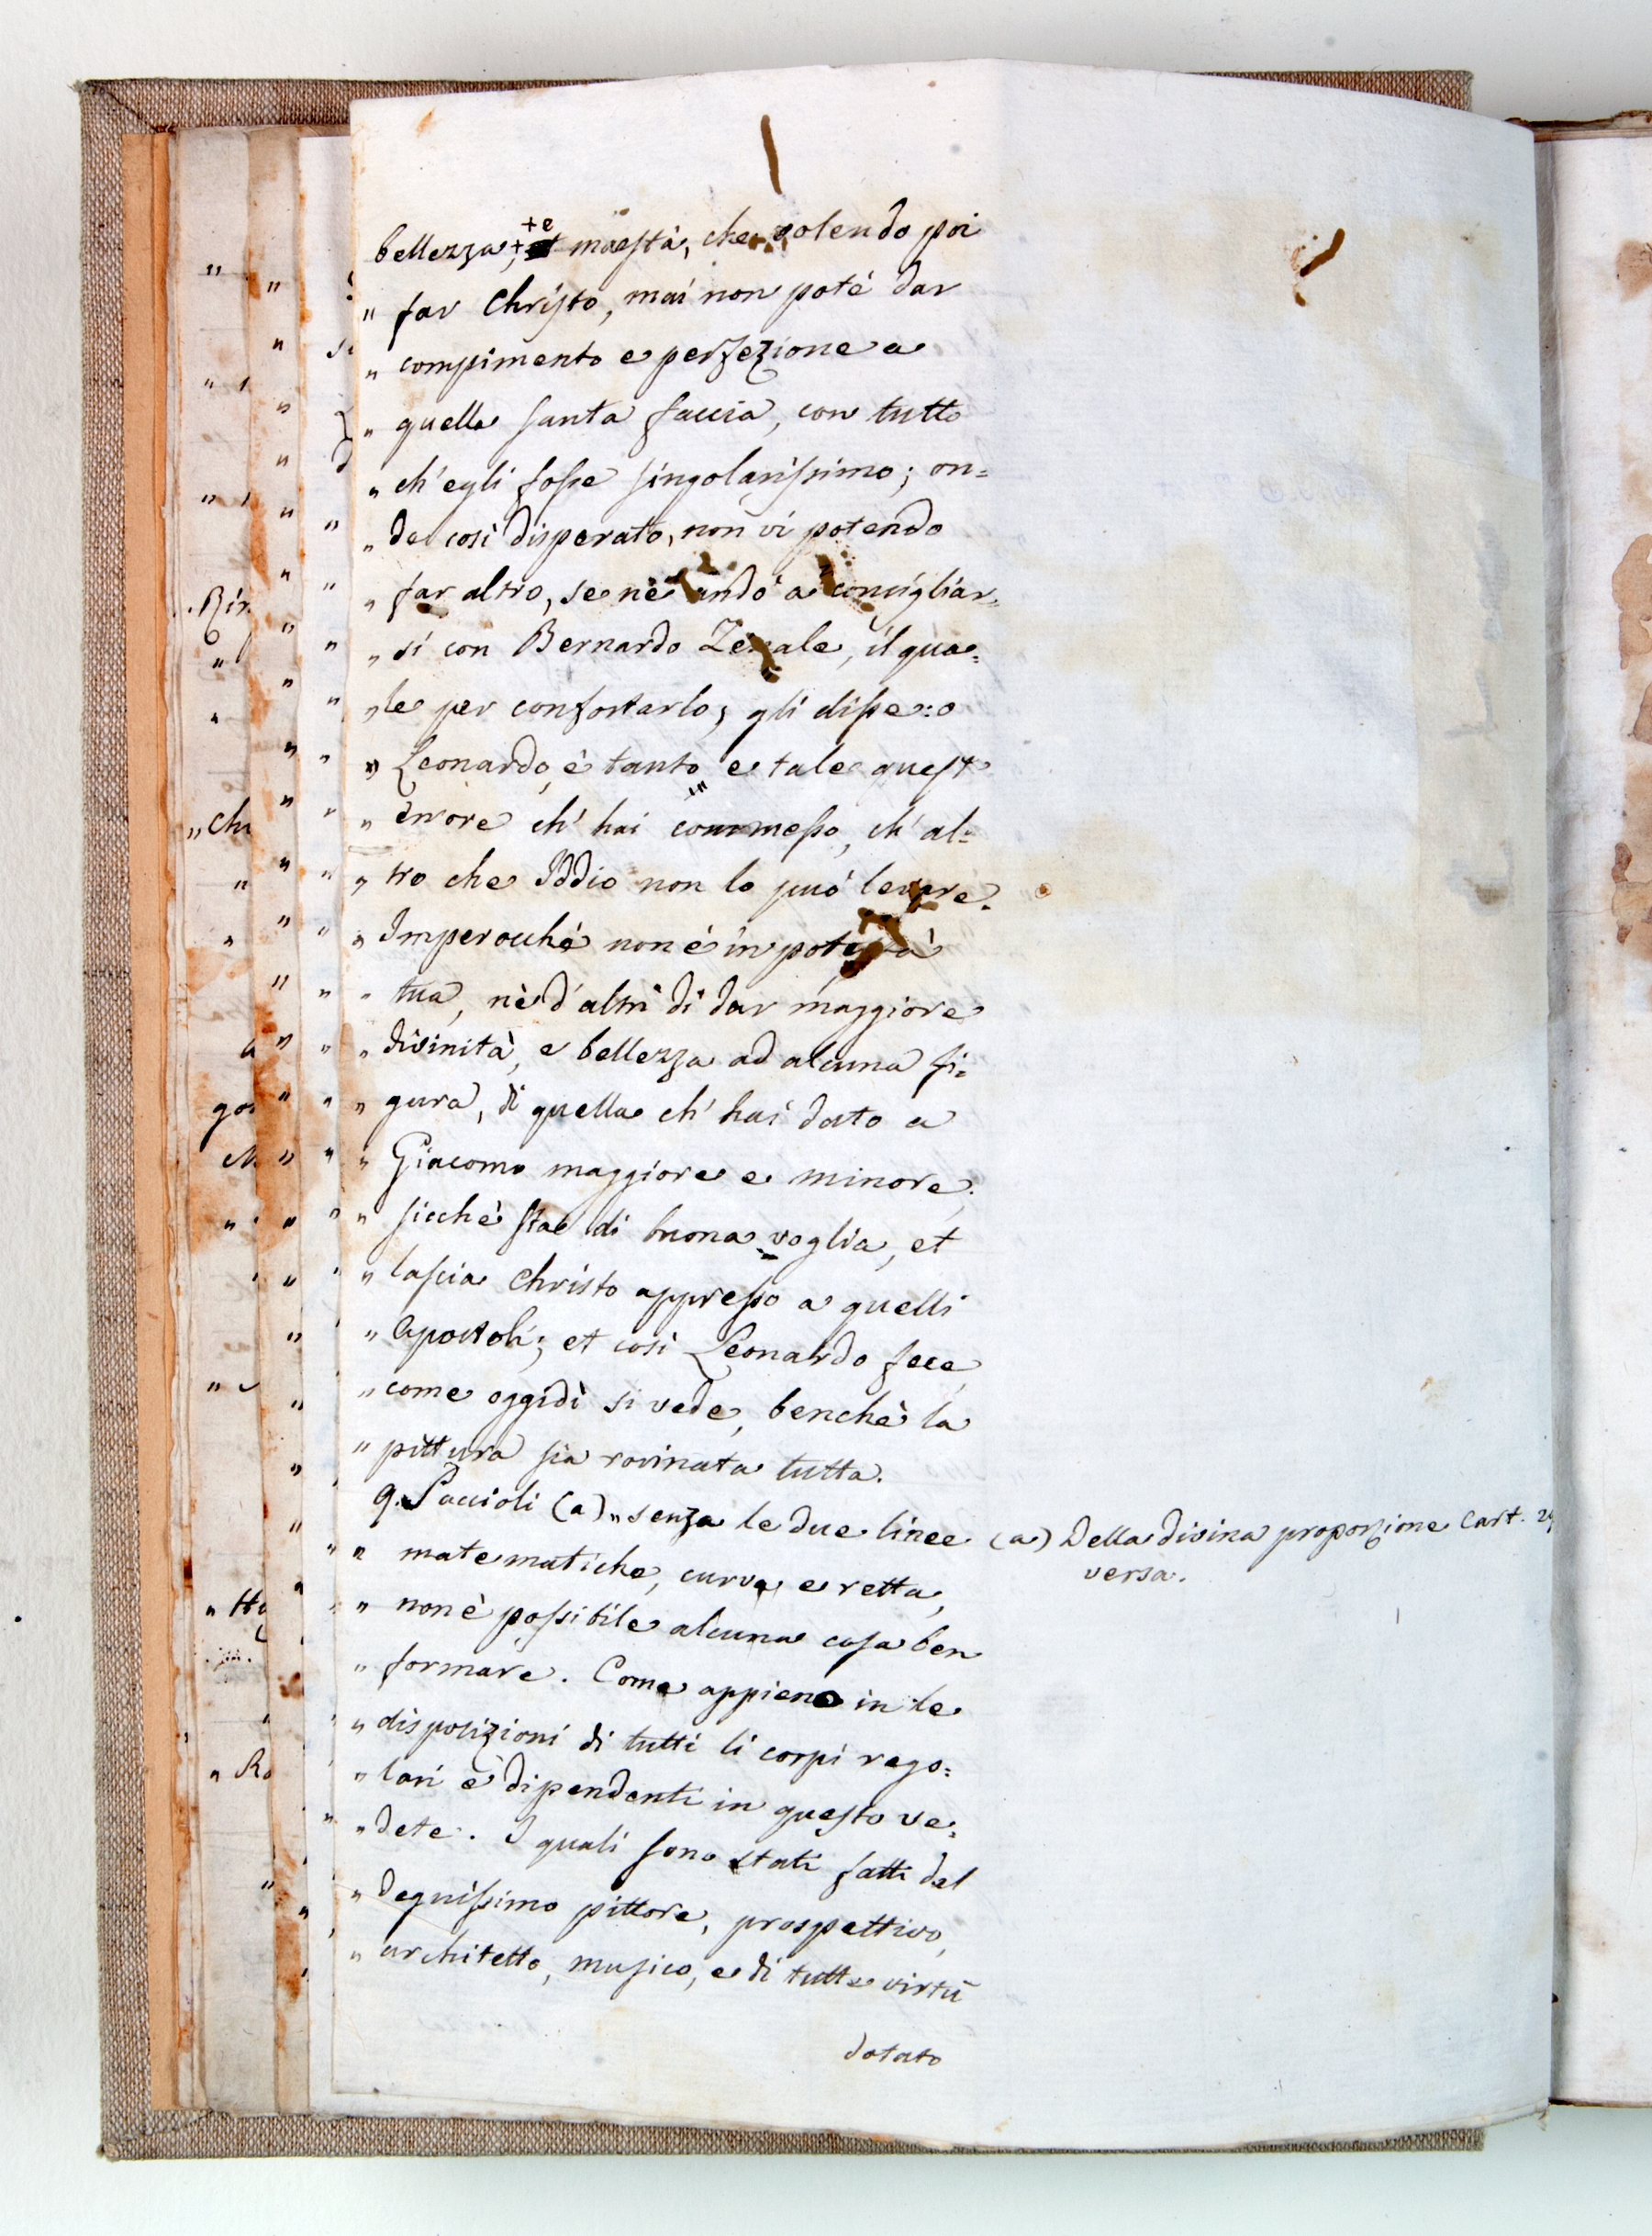 bellezza, + e maestà, che volendo poi
" far Christo, mai non poté dar
" compimento e perfezione a
" quella santa faccia, con tutto
" ch'egli fosse singolarissimo; on=
" de così disperato, non vi potendo
" far altro, se nè andò a consigliar=
" si con Bernardo Zenale, il qua=
" le per confortarlo, gli disse: o
" Leonardo, è tanto e tale quest
" errore ch' hai commesso, ch' al=
" tro che Iddio non lo può levare.
" Imperocchè non è in potestà
" tua, nè d'altri di dar maggiore
" divinità, e bellezza ad alcuna fi=
" gura, di quella ch' hai dato a
" Giacomo maggiore e minore.
" sicchè stae di buona voglia, et
" lascia Christo appresso a quelli
" Apostoli; et così Leonardo fece,
" come oggidì si vede, benchè la
" pittura sia rovinata tutta.
9. Paccioli (a) " senza le due linee
" matematiche, curva e retta,
" non è possibile alcuna cosa ben
" formare. Come appieno in le
" disposizioni di tutti li corpi rego=
" lari è dipendenti in questo ve=
" dete. I quali sono stati fatti dal
" degnissimo pittore, prospettivo,
" architetto, musico, e di tutte virtù
dotato
(a) Della divina proporzione Cart.
versa.